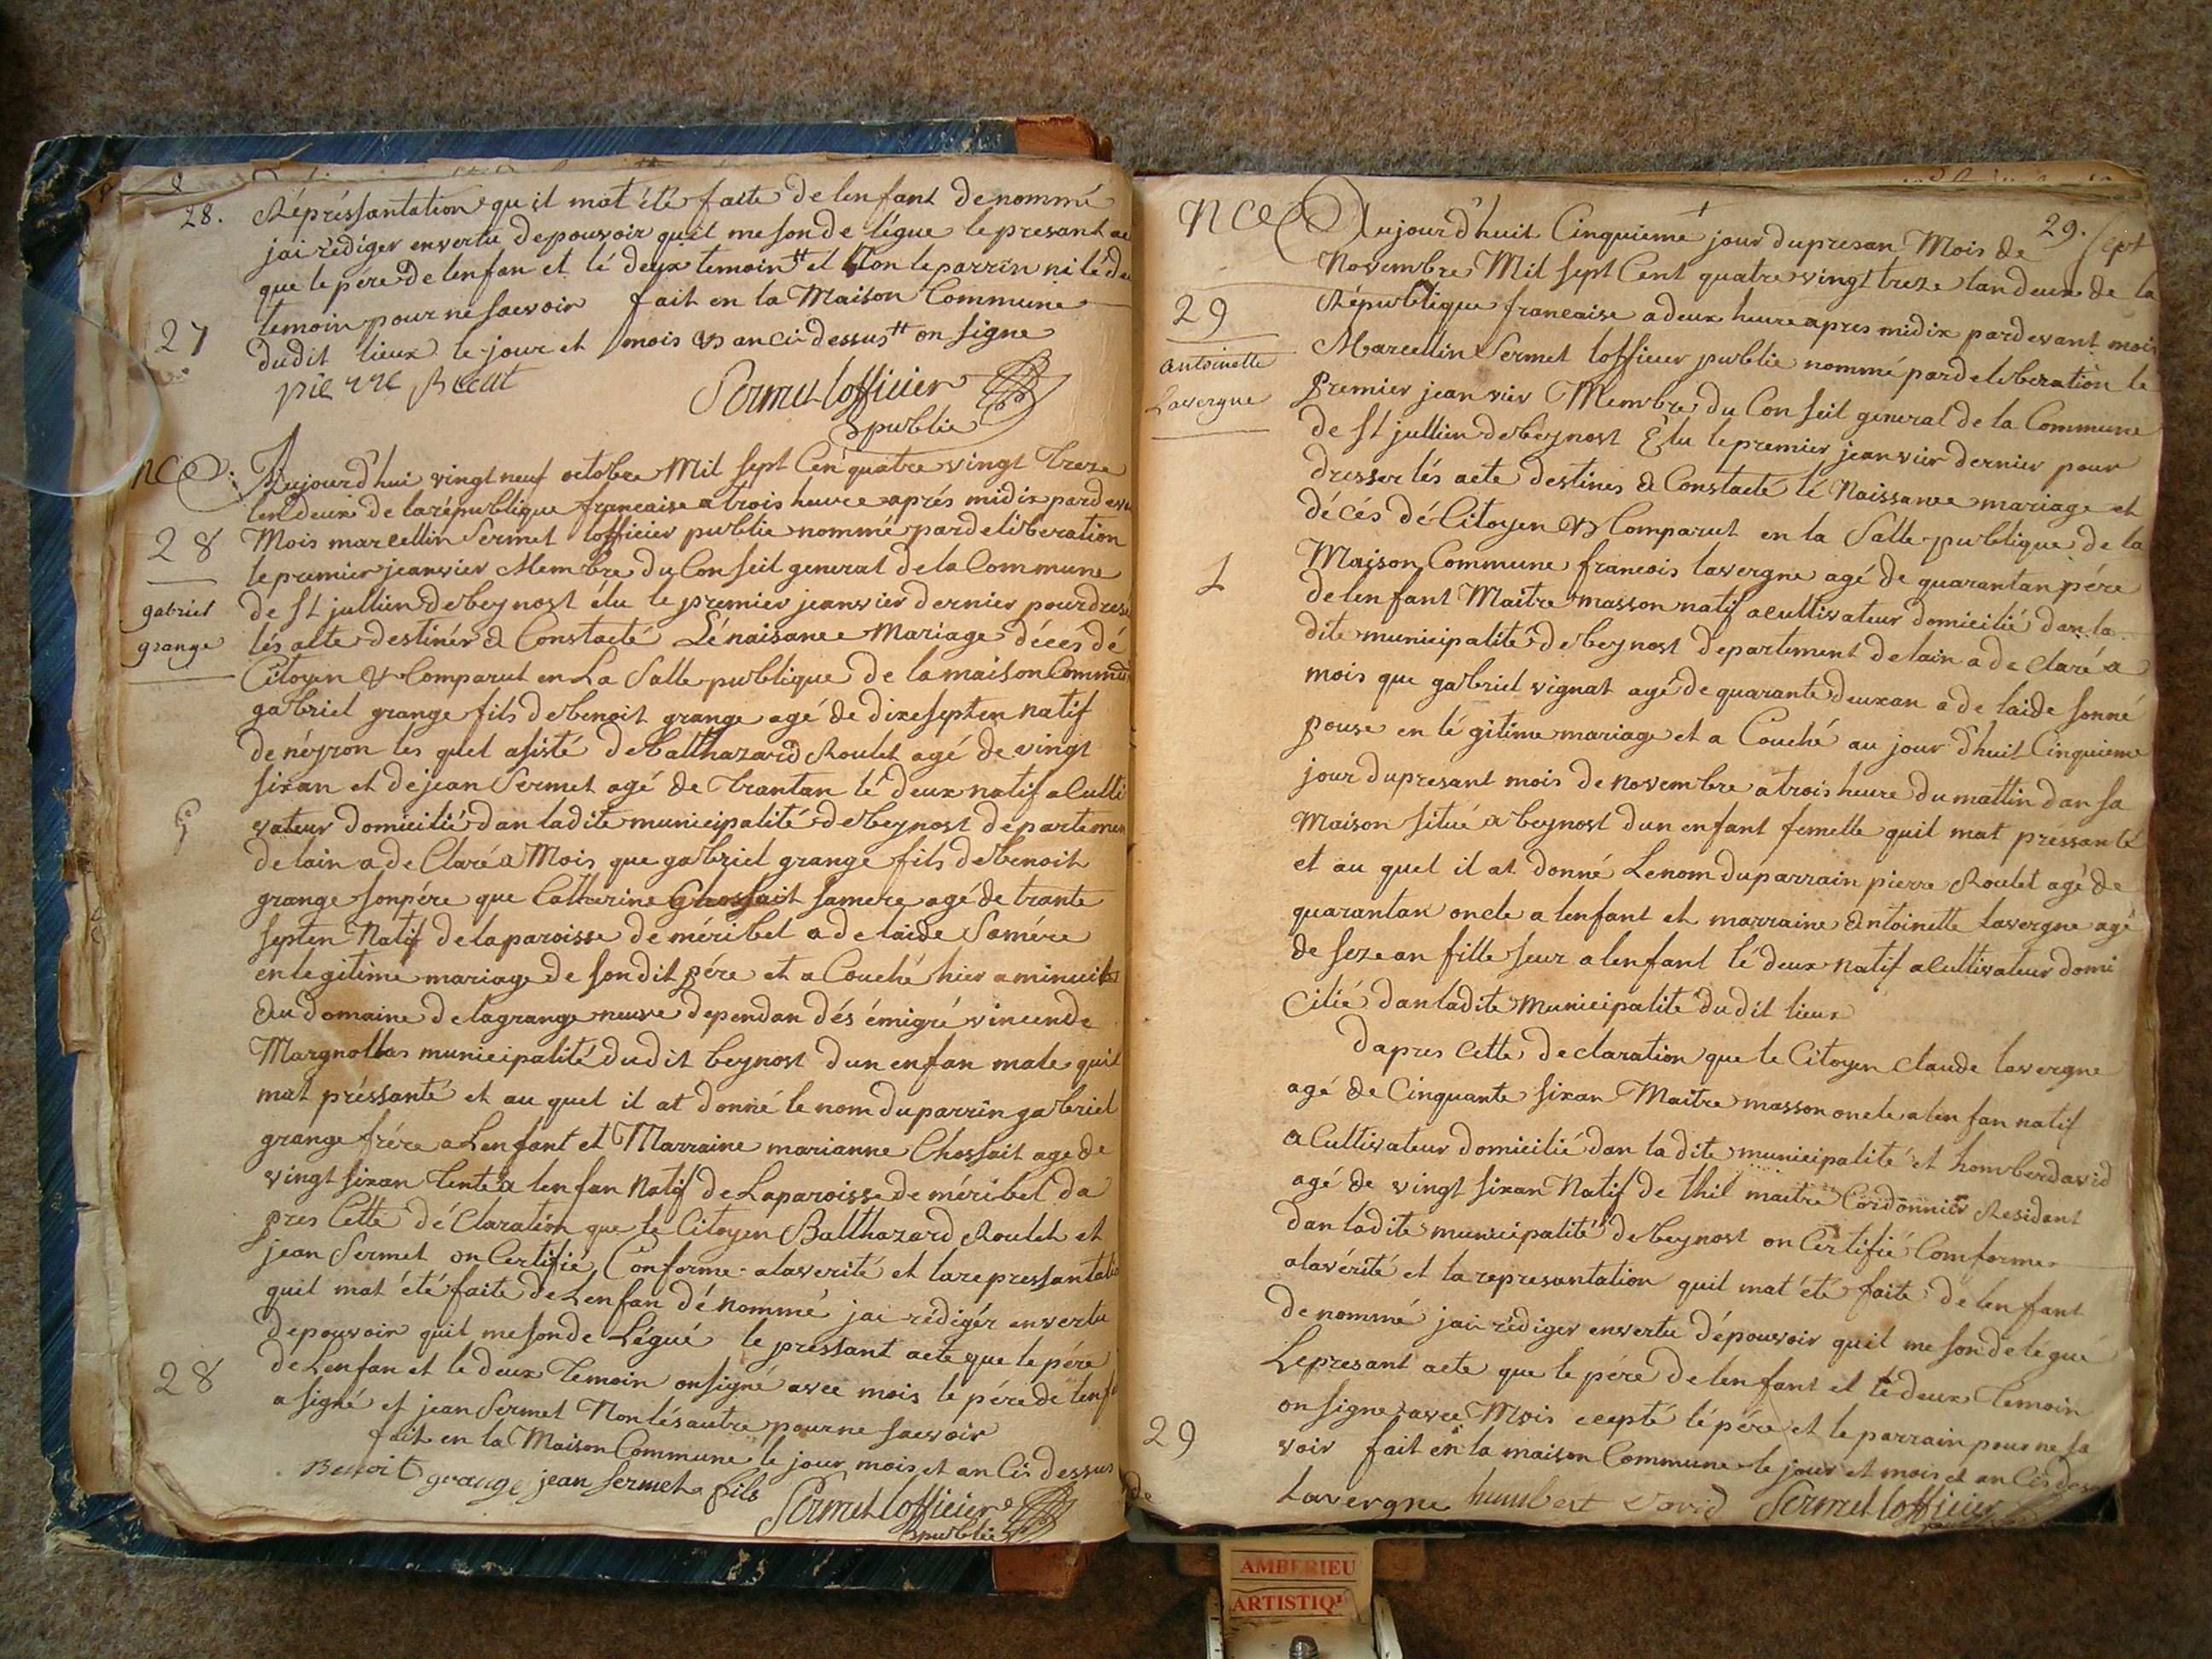 28.
Répréssantation qu il mat été faite de lenfant denommé
jai rédiger envertu depouvoir quil me son de légue le presant
que le pere de lenfan et lé deux temoin et Non le parrin ni lé
temoin pour ne saevoir fait en la Maison Commune
27
dudit lieux le jour et mois & an ci dessus on signe
pierre
Sermet lofficier
publie
nce
Aujourd'hui vingt neuf octobre Mil sept Cen quatre vingt treze
lendeux de larépublique francaise a trois heure aprés midix pardeva
28
Mois marcellin Sermet lofficier publie nommé pardeliberation
le premier jeanvier Membre du Conseil general de la Commune
gabriel
grange
de St jullien de beynost élu le premier jeanvier dernier pour
lés acte destinés & Constacté Lé naisance Mariage décés dé
Citoyen & Comparut en La Salle publique de la maison Commu
gabriel grange fils de benoit grange agé de dixesepten natif
de néyron les quel asisté de balthazard Roulet agé de vingt
sixan et de jean Sermet agé de trantan lé deux natif a Culti
5
vateur domicilié dan ladite municipalité de beynost departemen
de lain a de Claré a Mois que gabriel grange fils de benoit
grange son pére que Catherine Chossait samere agé de trante
septen Natif de la paroisse de méribel a de laide Samére
en legitime mariage de son dit pére et a Couché hier a minuit
au domaine de lagrange neuve dependan dés émigré vincende
Margnollas municipalité dudit beynost dun enfan male quil
mat préssanté et au quel il at donné le nom du parrin gabriel
grange frére a Lenfant et Marraine marianne Chossait age de
vingt sixan tente a lenfan Natif de La paroisse de méribel da
pres Cette dé Claration que le Citoyen Balthazard Roulet et
jean Sermet on Certifié Conforme a laverité et la repressantatio
quil mat été faite de Lenfan dénommé jai rédigér envertu
depouvoir quil me son de Légué le pressant acte que le pére
28
de Lenfan et le deux temoin on signé avec mois le pére de lenf
a signé et jean Sermet Non lés autre pour ne saevoir
fait en la Maison Commune le jour mois et an Ci dessus
Benoit grange jean sermet fils Sermet lofficier
publie
nce
29. Sept
Aujourd'huit Cinquieme jour du presan Mois de
Novembre Mil sept Cent quatre vingt treze lan deux de la
29
République francaise a deux heure apres midix pardevant mois
antoinette
Lavergne
Marcellin Sermet lofficier publie nommé pardeliberation le
Premier jeanvier Membre du Conseil general de la Commune
de St jullien de beynost Élu le premier jeanvier dernier pour
dresser lés acte destines & Constacté lé Naissance mariage et
décés dé Citoyen & Comparut en la Salle publique de la
1
Maison Commune francois lavergne agé de quarantan pére
de lenfant Maitre masson natif a cultivateur domicilié dan la
dite municipalité de beynost departement de lain a de claré a
mois que gabriel vignat agé de quarante deuxan a de laide sonné
pouse en légitime mariage et a Couché au jour d'huit Cinquieme
jour du presant mois de novembre a trois heure du mattin dan sa
Maison situé a beynost dun enfant femelle quil mat préssanté
et au quel il at donné Le nom du parrain pierre Roulet agé de
quarantan oncle a lenfant et marraine Antoinette lavergne agé
de seze an fille seur a lenfant lé deux natif a Cultivateur domi
cilié dan ladite municipalite dudit lieux
dapres cette declaration que le Citoyen claude lavergne
agé de Cinquante sixan Maitre masson oncle a lenfan natif
a Cultivateur domicilié dan la dite municipalité et homber david
agé de vingt sixan Natif de thil maitre Cordonnier Residant
dan ladite municipalité de beynost on Certifié Comforme
a lavérité et la represantation quil mat été faite de lenfant
denommé jai rédiger envertu dépouvoir quil me son delégué
Le presant acte que le pére de lenfant et lé deux temoin
29
on signe avec Mois ecepté lé pére et le parrain pour ne sa
voir fait en la maison Commune le jour et mois et an Ci desu
Lavergne humbert david Sermet lofficier
AMBERIEU
ARTISTIQ